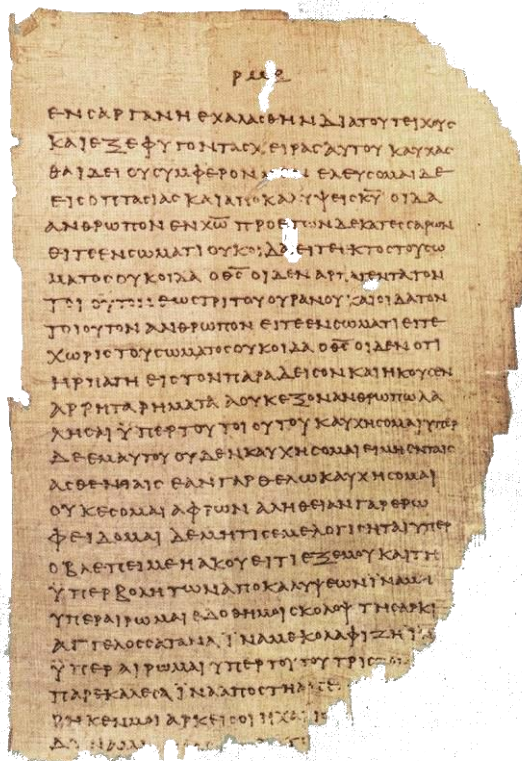 ρμε
ΕΝ ΣΑΡΓΑΝΗ ΕΧΑΛΑΣΘΗΝ ΔΙΑ ΤΟΥ ΤΕΙΧΟΥΣ
ΚΑΙ ΕΞΕΦΥΓΟΝ ΤΑΣ ΧΕΙΡΑΣ ΑΥΤΟΥ ΚΑΥΧΑΣ
ΘΑΙ ΔΕΙ ΟΥ ΣΥΜΦΕΡΟΝ ΕΛΕΥΣΟΜΑΙ ΔΕ
ΕΙΣ ΟΠΤΑΣΙΑΣ ΚΑΙ ΑΠΟΚΑΛΥΨΕΙΣ Κ̅Υ̅ ΟΙΔΑ
ΑΝΘΡΩΠΟΝ ΕΝ Χ̅Ω̅ ΠΡΟ ΕΤΩΝ ΔΕΚΑΤΕΣΣΑΡΩΝ
ΕΙΤΕ ΕΝ ΣΩΜΑΤΙ ΟΥΚ ΟΙΔΑ ΕΙΤΕ ΕΚΤΟΣ ΤΟΥ ΣΩ
ΜΑΤΟΣ ΟΥΚ ΟΙΔΑ Ο Θ̅Σ̅ ΟΙΔΕΝ ΑΡΠΑΓΕΝΤΑ ΤΟΝ
ΤΟΙΟΥΤΟΝ ΕΩΣ ΤΡΙΤΟΥ ΟΥΡΑΝΟΥ ΚΑΙ ΟΙΔΑ ΤΟΝ
ΤΟΙΟΥΤΟΝ ΑΝΘΡΩΠΟΝ ΕΙΤΕ ΕΝ ΣΩΜΑΤΙ ΕΙΤΕ
ΧΩΡΙΣ ΤΟΥ ΣΩΜΑΤΟΣ ΟΥΚ ΟΙΔΑ Ο Θ̅Σ̅ ΟΙΔΕΝ ΟΤΙ
ΗΡΠΑΓΗ ΕΙΣ ΤΟΝ ΠΑΡΑΔΕΙΣΟΝ ΚΑΙ ΗΚΟΥΣΕΝ
ΑΡΡΗΤΑ ΡΗΜΑΤΑ Α ΟΥΚ ΕΞΟΝ ΑΝΘΡΩΠΩ ΛΑ
ΛΗΣΑΙ ΫΠΕΡ ΤΟΥ ΤΟΙΟΥΤΟΥ ΚΑΥΧΗΣΟΜΑΙ ΥΠΕΡ
ΔΕ ΕΜΑΥΤΟΥ ΟΥΔΕΝ ΚΑΥΧΗΣΟΜΑΙ ΕΙ ΜΗ ΕΝ ΤΑΙΣ
ΑΣΘΕΝΙΑΙΣ ΕΑΝ ΓΑΡ ΘΕΛΩ ΚΑΥΧΗΣΟΜΑΙ
ΟΥΚ ΕΣΟΜΑΙ ΑΦΡΩΝ ΑΛΗΘΕΙΑΝ ΓΑΡ ΕΡΩ
ΦΕΙΔΟΜΑΙ ΔΕ ΜΗ ΤΙΣ ΕΜΕ ΛΟΓΙΣΗΤΑΙ ΥΠΕΡ
Ο ΒΛΕΠΕΙ ΜΕ Η ΑΚΟΥΕΙ ΤΙ ΕΞ ΕΜΟΥ ΚΑΙ ΤΗ
ΫΠΕΡΒΟΛΗ ΤΩΝ ΑΠΟΚΑΛΥΨΕΩΝ ΪΝΑ ΜΗ
ΥΠΕΡΑΙΡΩΜΑΙ ΕΔΟΘΗ ΜΟΙ ΣΚΟΛΟΨ ΤΗ ΣΑΡΚΙ
ΑΓΓΕΛΟΣ ΣΑΤΑΝΑ ΪΝΑ ΜΕ ΚΟΛΑΦΙΖΗ
ΫΠΕΡΑΙΡΩΜΑΙ ΥΠΕΡ ΤΟΥΤΟΥ ΤΡΙΣ
ΠΑΡΕΚΑΛΕΣΑ ΪΝΑ ΑΠΟΣΤΗ
ΡΗΚΕΝ ΜΟΙ ΑΡΚΕΙ ΣΟΙ Η ΧΑ